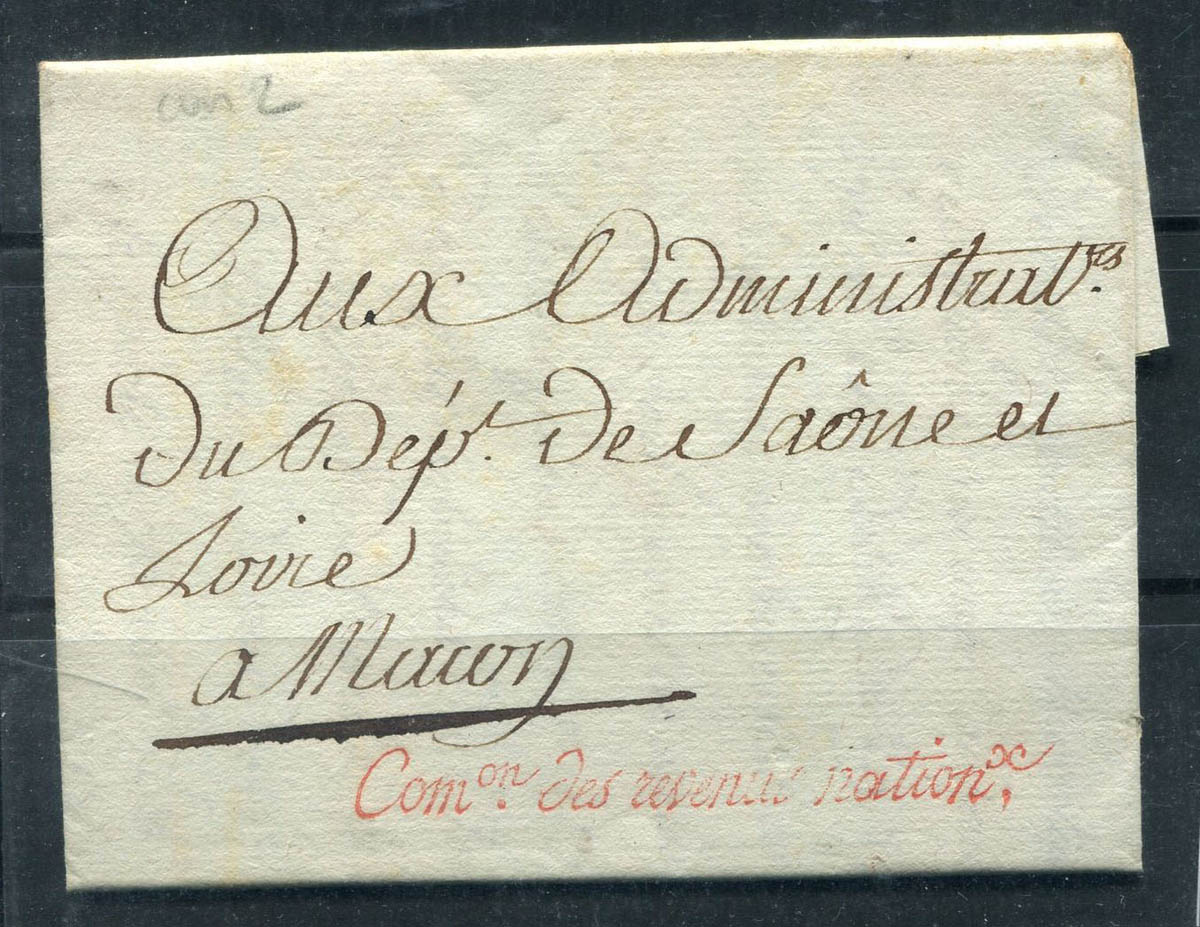 an 2
Aux Administratrs.
Du Dépt. De Saône et
Loire
a Macon
Comon. des revenus nationx.